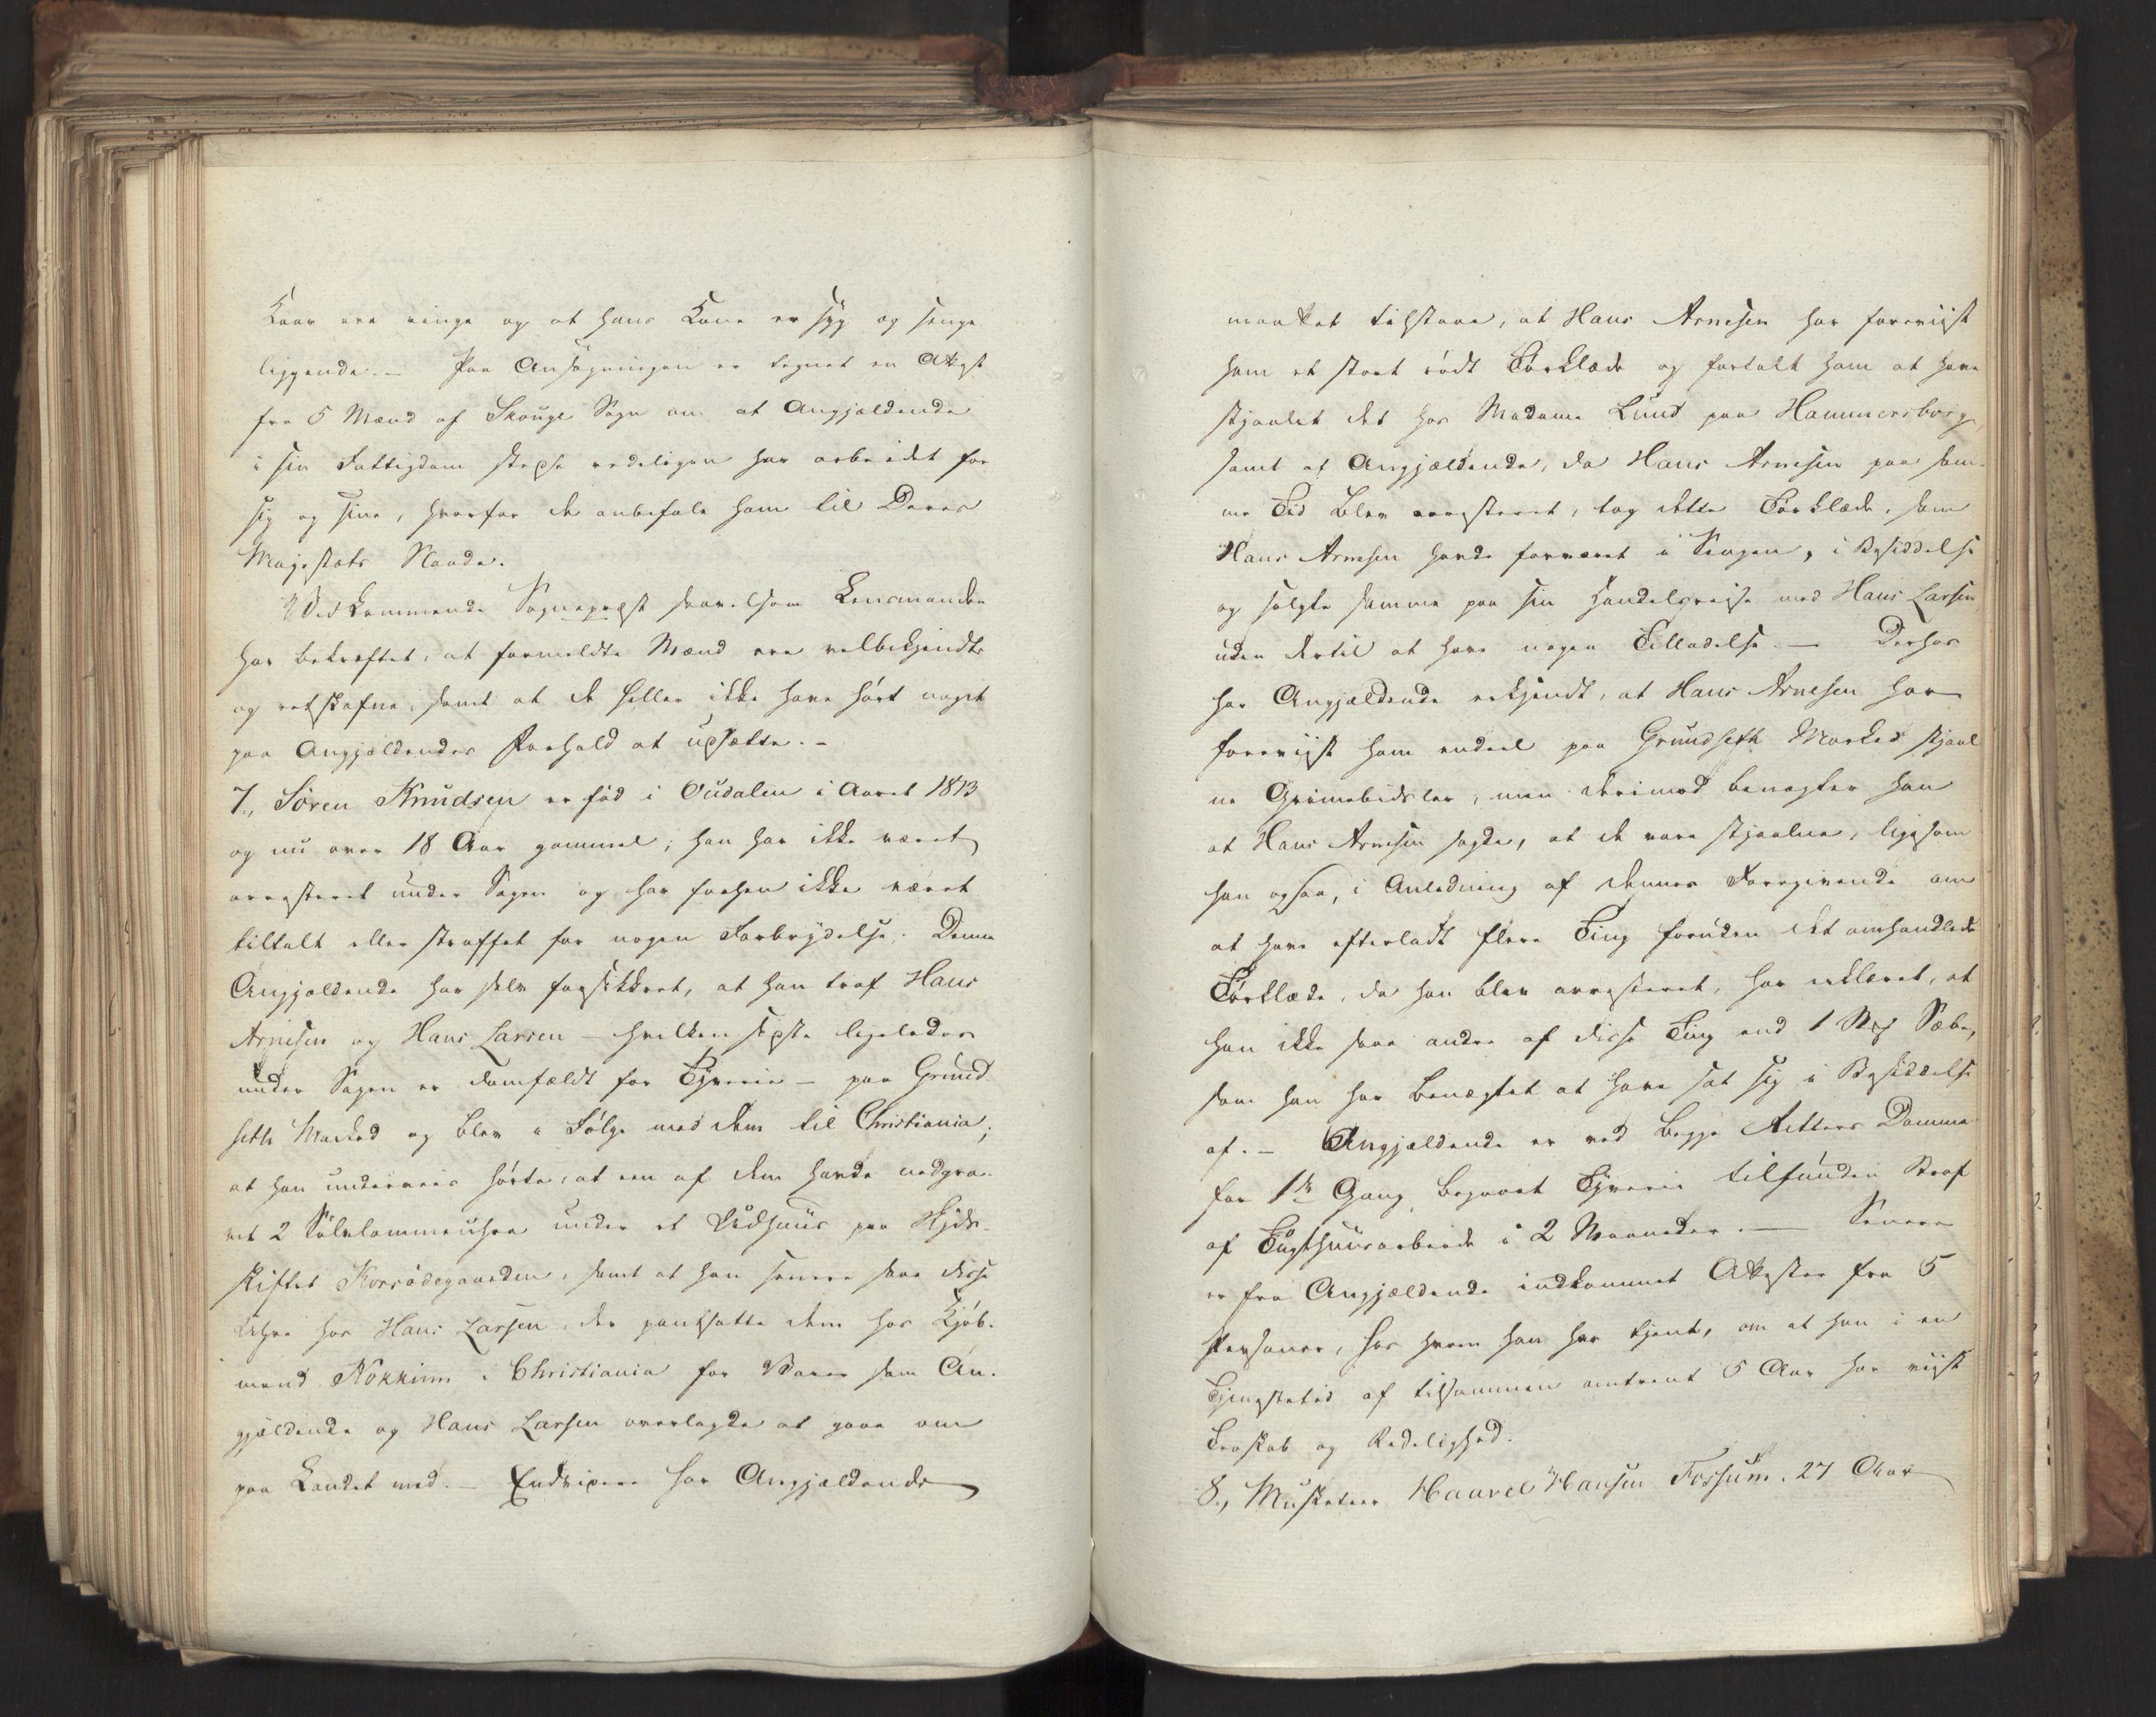 Kaar ere ringe og at hans Kone er syg og senge
liggende. – Paa Ansøgningen er tegnet en Attest
fra 5 Mænd af Skouge Sogn om at Angjældende
i sin Fattigdom stedse redeligen har arbeidet for
sig og sine, hvorfor de anbefale ham til Deres
Majestæts Naade.
Vedkommende Sognepræst saavelsom Lensmanden
har bekræftet, at formeldte Mænd ere velbekjendte
og retskafne, samt at de heller ikke have hørt noget
paa Angjældendes Forhold at udsætte. –
7., Søren Knudsen er fød i Oudalen i Aaret 1813
og nu over 18 Aar gammel; han har ikke været
arresteret under Sagen og har forhen ikke været
tiltalt eller straffet for nogen Forbrydelse. Denne
Angjældende har selv forsikkret, at han traf Hans
Arnesen og Hans Larsen – hvilken sidste ligeledes
under Sagen er domfældt for Tyverie – paa Grund
seth Marked og blev i Følge med dem til Christiania;
at han underveis hørte, at een af dem havde nedgra-
vet 2 Sølvlommeuhre under et Udhuus paa Skyds-
skiftet Korsødegaarden, samt at han senere saae disse
Uhre hos Hans Larsen, der pantsatte dem hos Kjøb-
mand Nokkim i Christiania for Varer som An-
gjældende og Hans Larsen overlagde at gaae om
paa Landet med. – Endvidere har Angjældende
maattet tilstaae, at Hans Arnesen har foreviist
ham et stort rødt Tørklæde og fortalt ham at have
stjaalet det hos Madame Lund paa Hammersborg,
samt at Angjældende, da Hans Arnesen paa sam-
me Tid blev arresteret, tog dette Tørklæde, som
Hans Arnesen havde forvaret i Sengen, i Besiddelse
og solgte samme paa sin Handelsreise med Hans Larsen
uden dertil at have nogen Tilladelse. – Derhos
har Angjældende erkjendt, at Hans Arnesen har
foreviist ham endeel paa Grundseth Marked stjaal
ne Grimebidsler, men derimod benægter han
at Hans Arnesen sagde, at de vare stjaalne, ligesom
han ogsaa, i Anledning af dennes Foregivende om
at have efterladt flere Ting foruden det omhandlede
Tørklæde, da han blev arresteret, har erklæret, at
han ikke saae andre af disse Ting end 1 Stk Sæbe,
som han har benægtet at have sat sig i Besiddelse
af. – Angjældende er ved begge Retters Domme
for 1ste Gang begaaet Tyverie tilfunden Straf
af Tugthuusarbeide i 2 Maaneder. – Senere
er fra Angjældende indkommet Attester fra 5
Personer, hos hvem han har tjent, om at han i en
Tjenestetid af tilsammen omtrent 5 Aar har viist
Troskab og Redelighed.
8., Musketeer Haavel Hansen Fossum, 27 Aar